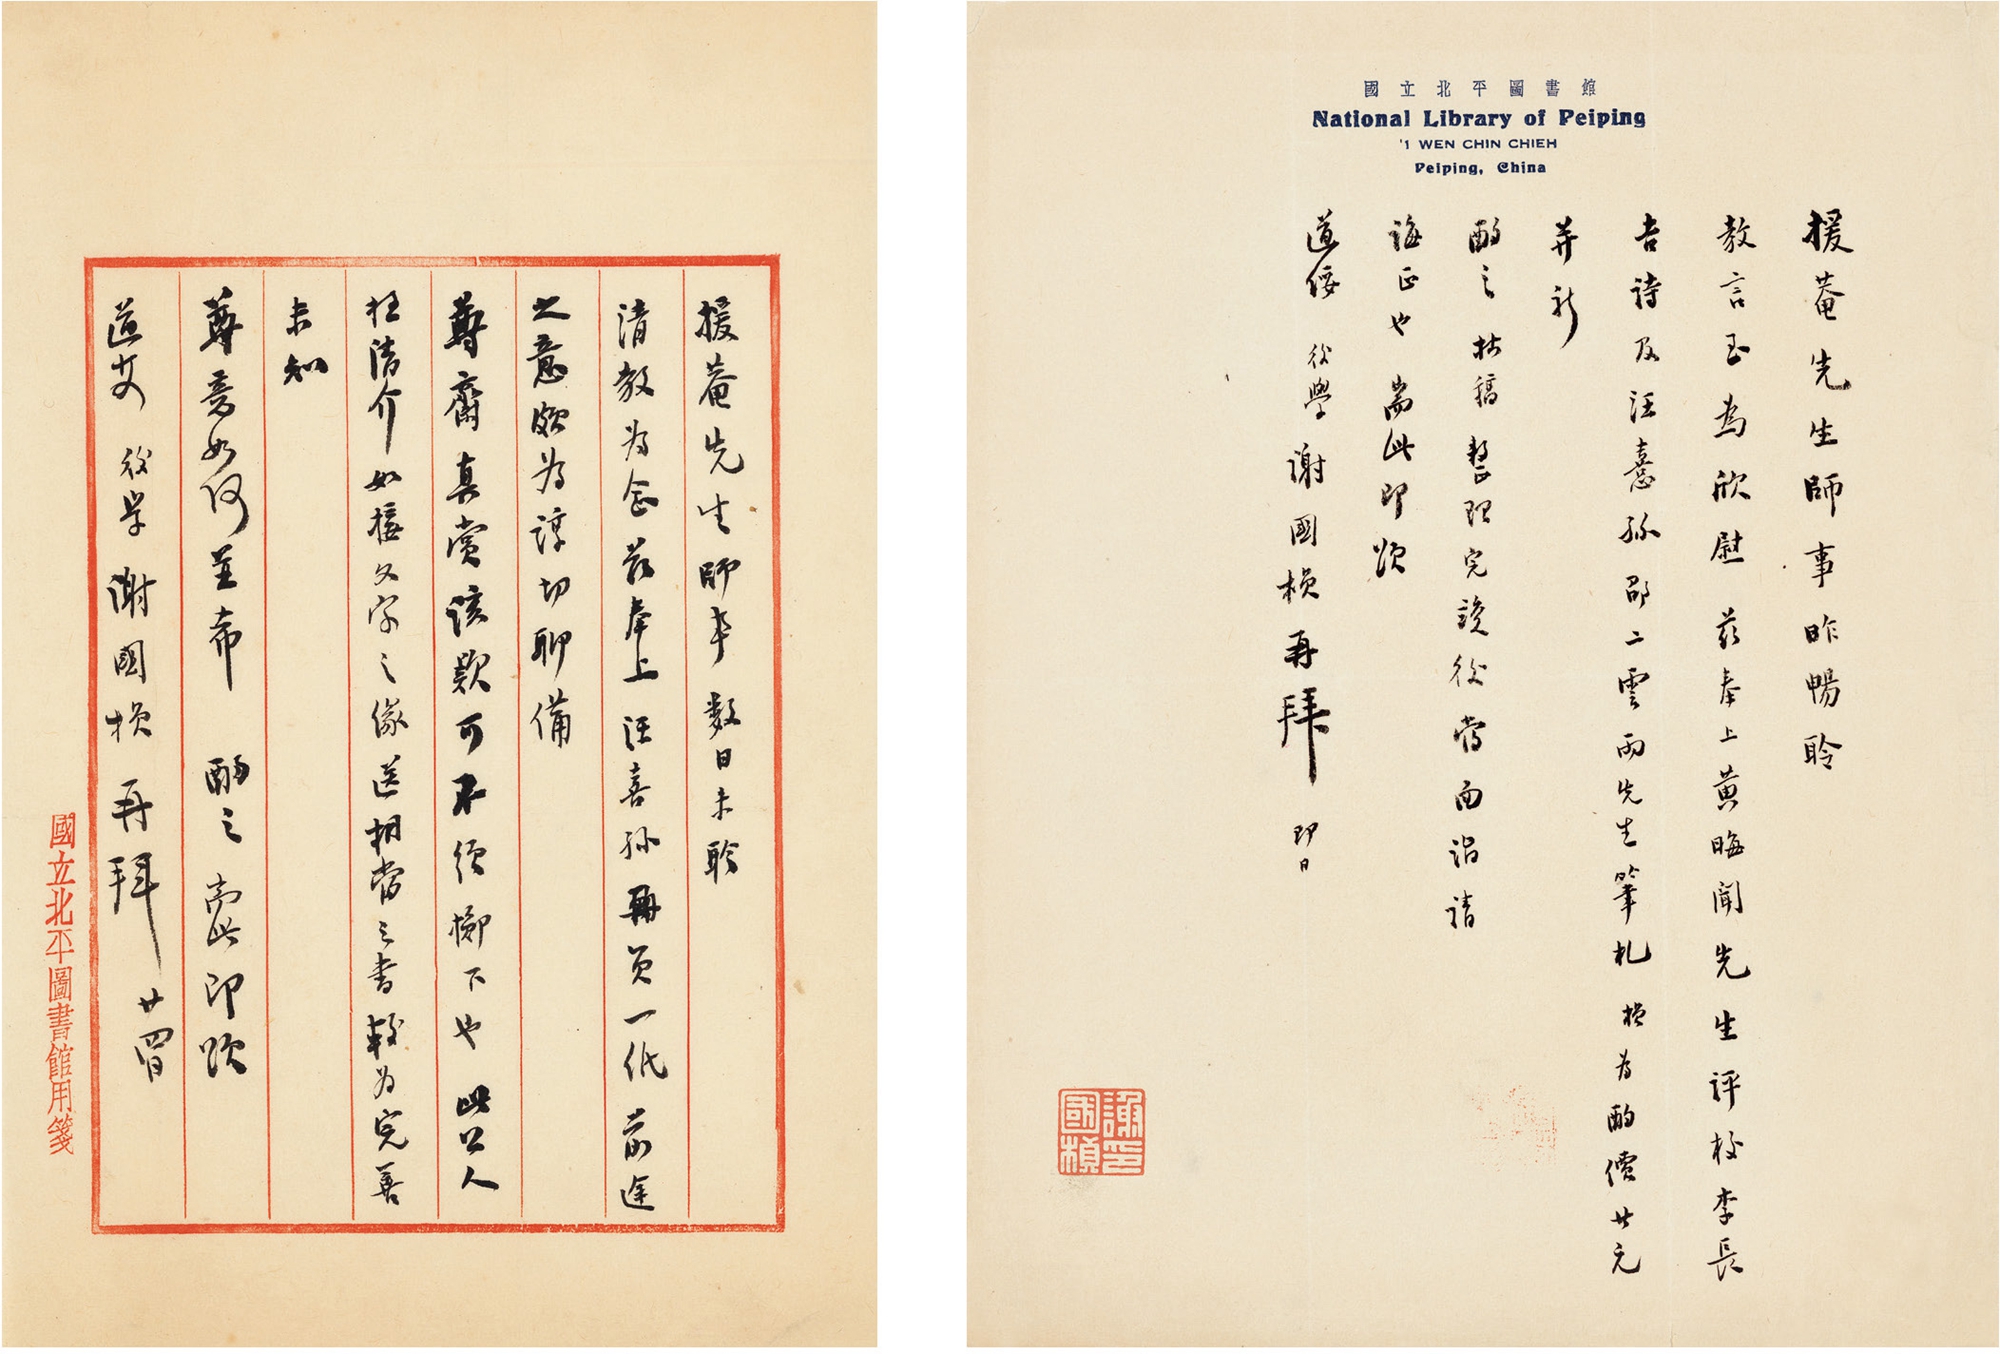 國立北平圖書館
National Library of Peiping
1 WEN CHIN CHIEH
Peiping, China
援菴先生師事昨暢聆
教言至為欣慰茲奉上黃晦聞先生評校李長
吉詩及汪憙孫邵二雲兩先生筆札楨為酌價廿元
并祈
酌之拙稿整理完竣後當面詣請
誨正也耑此即頌
道綏 後學謝國楨再拜 即日
謝國楨印
援菴先生師事數日未聆
清教為念茲奉上汪喜孫冊頁一紙前途
之意頗為諄切聊備
尊齋真賞該款可不須擲下也此公人
極清介如援文字之緣送相當之書較為完善
未知
尊意如何並希 酌之耑此即頌
道安 後學謝國楨再拜 廿四日
國立北平圖書館用箋